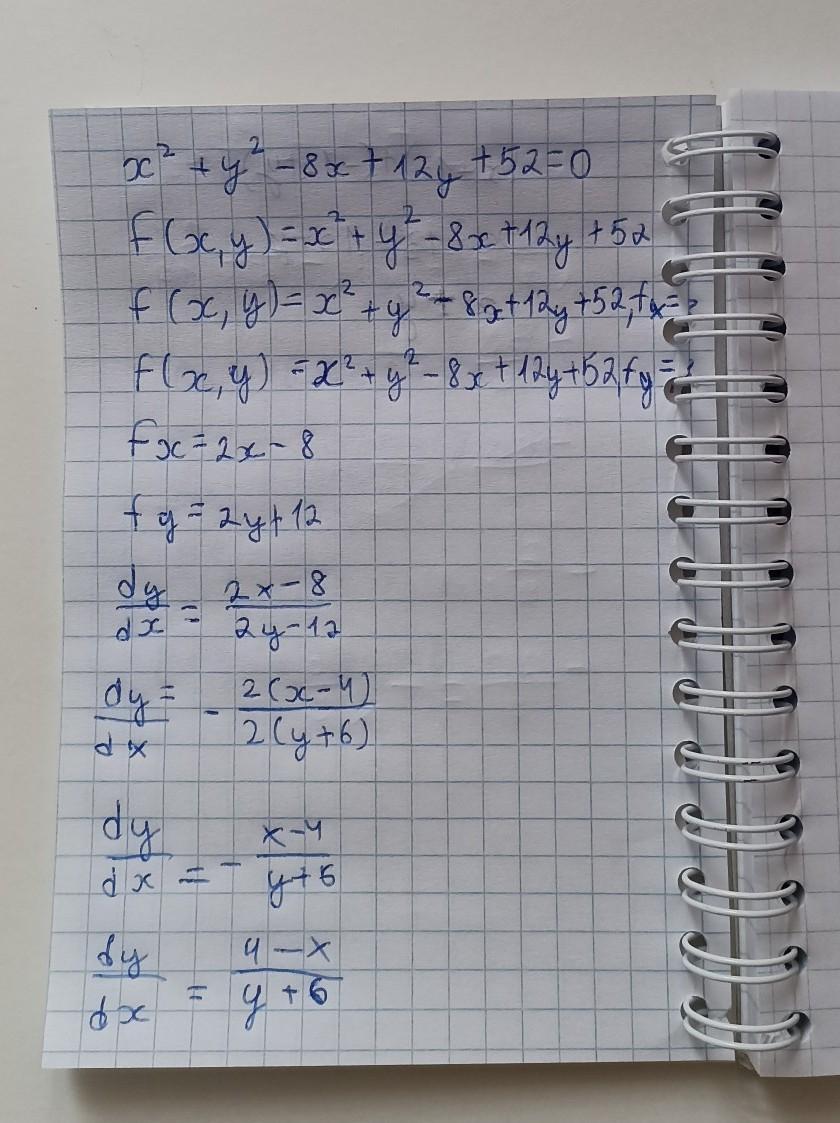 x² + y² - 8x + 12y + 52 = 0
f(x,y) = x² + y² - 8x + 12y + 52
f(x,y) = x² + y² - 8x + 12y + 52, fx = ?
f(x,y) = x² + y² - 8x + 12y + 52, fy = ?
fx = 2x - 8
fy = 2y + 12
dy/dx = (2x - 8)/(2y - 12)
dy/dx = - 2(x - 4)/2(y + 6)
dy/dx = - (x - 4)/(y + 6)
dy/dx = (4 - x)/(y + 6)